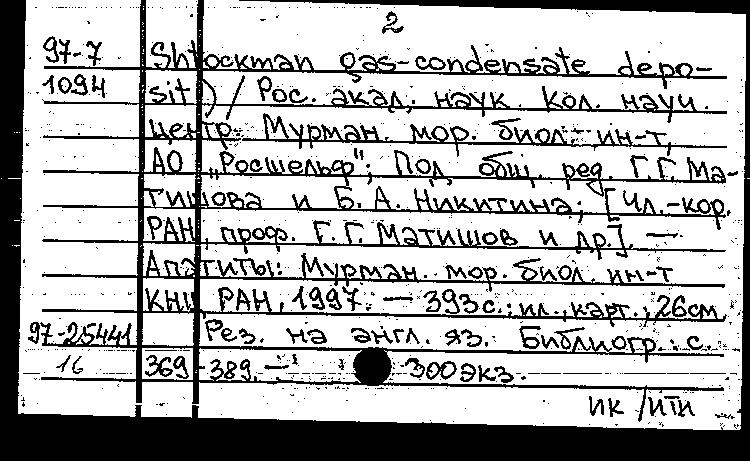 2
97-7 Shtockman gas-condensate depo-
1094 sit) / Рос. акад. наук. Кол. науч.
центр. Мурман. мор. биол. ин-т,
АО „Росшельф"; Под общ. ред. Г.Г. Ма-
тишова и Б. А. Никитина; [Чл.-кор.
РАН, проф. Г. Г. Матишов и др.]. —
Апатиты: Мурман. мор. биол. ин-т
КНЦ РАН, 1997. — 393 с.: ил., карт.; 26 см
97-25441 Рез. на англ. яз. Библиогр.: с.
16 369-389. — 300 экз.
ИК /ИТИ